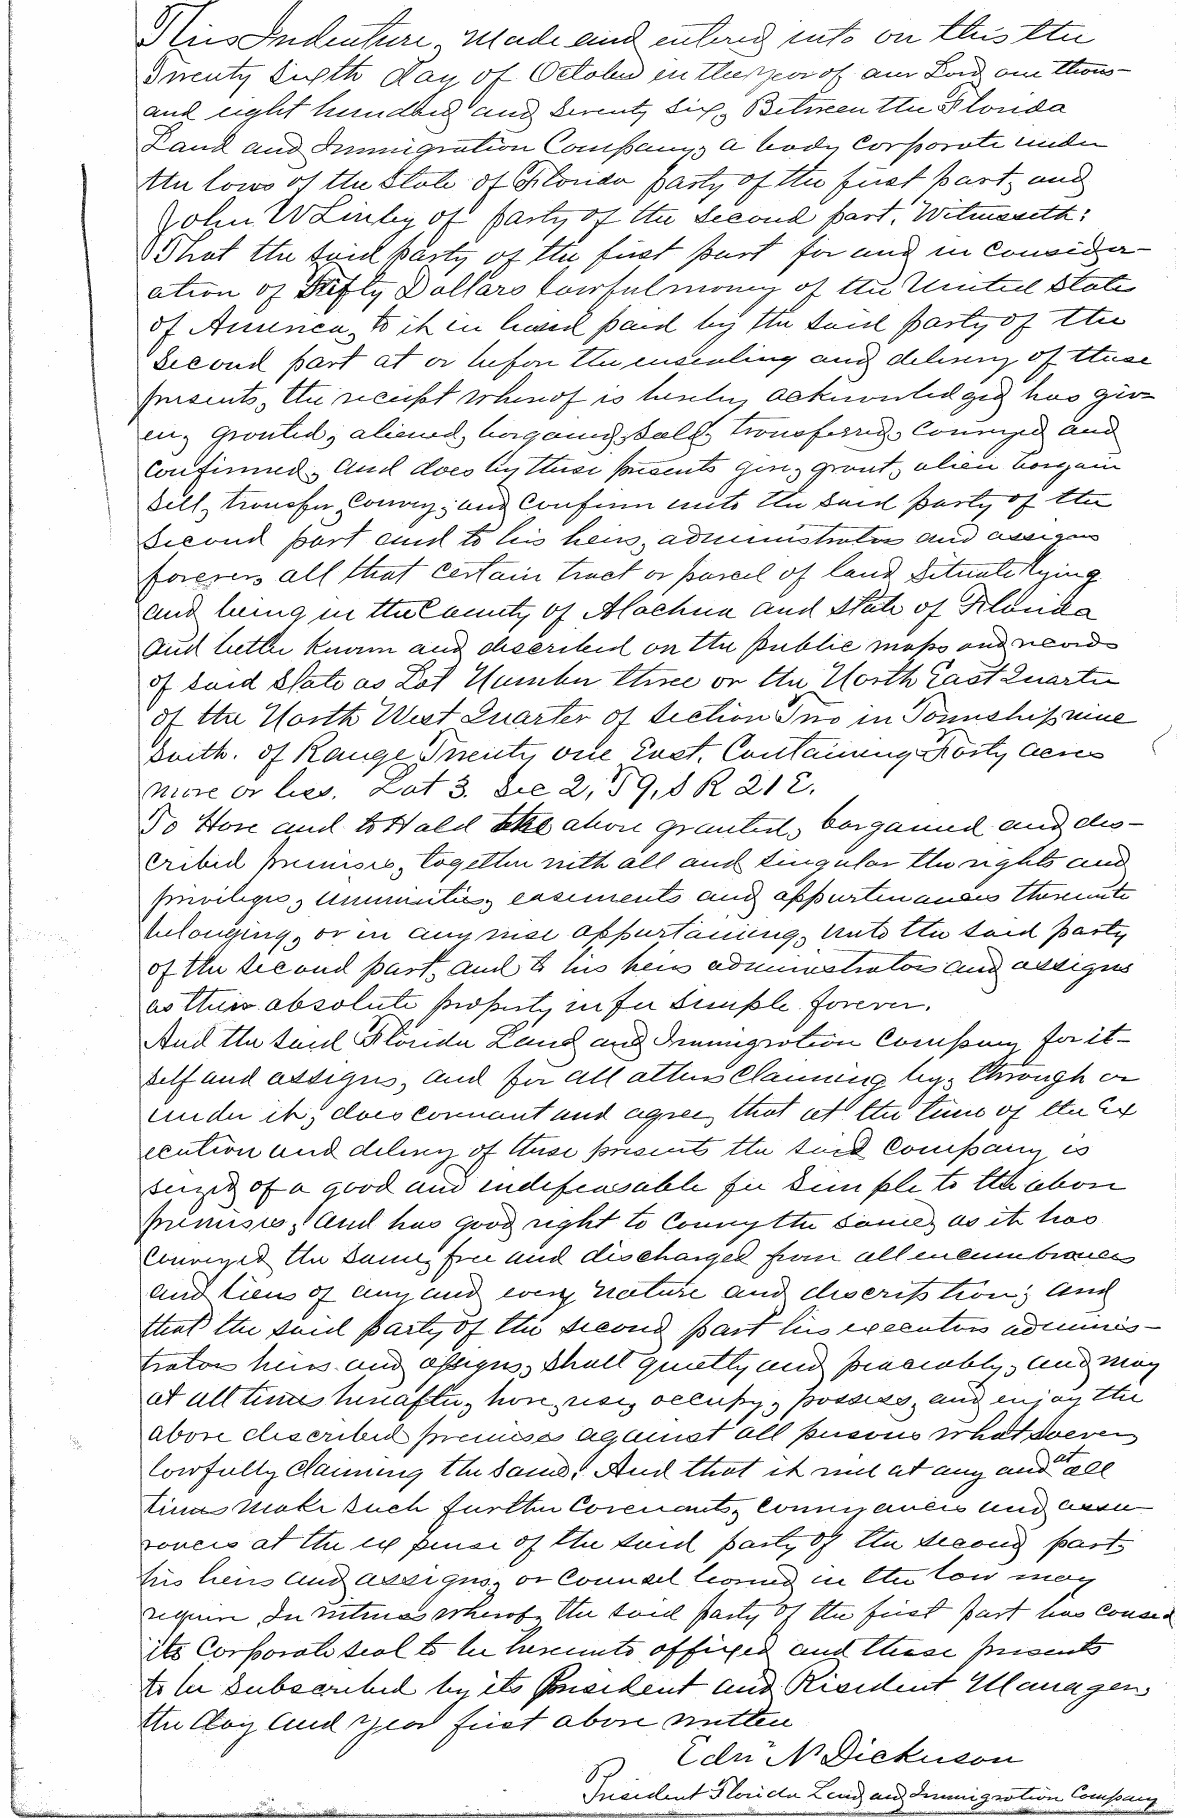 This Indenture, Made and entered into on this the
Twenty Sixth day of October in the year of our Lord one thous-
and eight hundred and Seventy Six, Between the Florida
Land and Immigration Company, a body Corporate under
the laws of the State of Florida party of the first part, and
John W Linley of party of the Second part. Witnesseth:
That the said party of the first part for and in consider-
ation of Fifty Dollars lawful money of the United State
of America, to it in hand paid by the said party of the
Second part at or before the ensealing and delivery of these
presents, the receipt whereof is hereby acknowledged has giv-
en, granted, aliened, bargained, sold, transferred, Conveyed and
confirmed, And does by these presents give, grant, alien bargain
Sell, transfer, Convey, and Confirm unto the said party of the
Second part and to his heirs, administrators and assigns
forever, all that certain tract or parcel of land Situate lying
and being in the County of Alachua and State of Florida
and better known and described on the public maps and records
of said State as Lot Number three or the North East Quarter
of the North West Quarter of Section Two in Township nine
South. of Range Twenty one East. Containing Forty acres
more or less. Lot 3. Sec 2, T 9, S R 21 E.
To Have and to Hold the above granted, bargained and des-
cribed premises, together with all and Singular the rights and
privileges, immunities, easements and appurtenances thereunto
belonging, or in any wise appertaining, unto the said party
of the Second part, and to his heirs administrators and assigns
as their absolute property in fee Simple forever.
And the said Florida Land and Immigration Company for it-
self and assigns, and for all others Claiming by, through or
under it, does covenant and agree, that at the time of the Ex
ecution and delivery of these presents the said Company is
seized of a good and indefeasable fee Simple to the above
premises, And has good right to Convey the same, as it has
Conveyed the Same, free and discharged from all encumbrances
and liens of any and every nature and discription; and
that the said party of the second part his executors adminis-
trators heirs and assigns, shall quietly and peaceably, and may
at all times hereafter, have, use, occupy, possess, and enjoy the
above described premises against all persons whatsoever
lawfully Claiming the Same. And that it will at any and at all
times make such further Covenants, Conveyances and assu
rances at the expense of the said party of the second part
his heirs and assigns, or Counsel learned in the law may
require In witness whereof, the said party of the first part has caused
its Corporate seal to be hereunto affixed and these presents
to be Subscribed by its President and Risident Manager
the day and year first above written
Edn N Dickerson
President Florida Land and Immigration Company